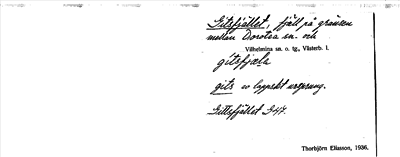 Gitsfjället, fjäll på gränsen
mellan Dorotea sn. och
Vilhelmina sn. o. tg., Västerb. l.
gitsfjæla
gits av lappskt ursprung.
Gittsfjället G47.
Thorbjörn Eliasson, 1936.